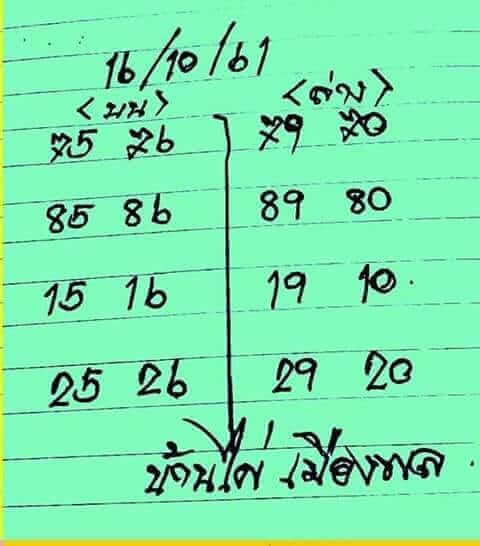 16/10/61
<บน> <ล่าง>
75 76 79 70
85 86 89 80
15 16 19 10.
25 26 29 20
บ้านไผ่ เมืองพล.